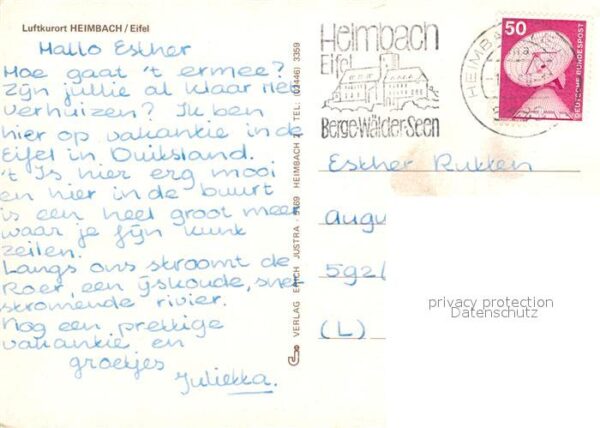 Luftkurort HEIMBACH / Eifel
Hallo Esther
Hoe gaat 't ermee?
Zijn jullie al klaar met
verhuizen? Ik ben
hier op vakantie in de
Eifel in Duitsland.
't Is hier erg mooi
en hier in de buurt
is een heel groot meer
waar je fijn kunt
zeilen.
Langs ons stroomt de
Roer, een ijskoude, snel
stromende rivier.
Nog een prettige
vakantie en
groetjes
VERLAG ERICH JUSTRA · 5169 HEIMBACH · TEL: (02446) 3359
Heimbach
Eifel
Berge-Wälder-Seen
HEIMBACH
50
DEUTSCHE BUNDESPOST
Esther
augu
592/
(L)
privacy protection
Datenschutz